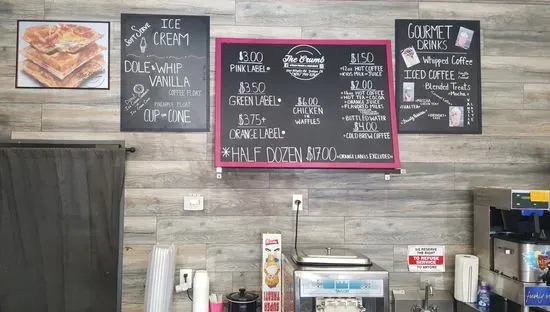 Soft Serve
ICE
CREAM
DOLE WHIP
VANILLA
COFFEE FLOAT
PINEAPPLE FLOAT
CUP OR CONE
$3.00
PINK LABEL
$3.50
GREEN LABEL
$3.75+
ORANGE LABEL
The Crumb
$6.00
CHICKEN
N
WAFFLES
$1.50
12oz HOT COFFEE
KIDS MILK JUICE
$2.00
16oz HOT COFFEE
HOT TEA COCOA
ORANGE JUICE
FLAVORED MILKS
BOTTLED WATER
$4.00
COLD BREW COFFEE
*HALF DOZEN $17.00
*ORANGE LABELS EXCLUDED*
GOURMET
DRINKS
Whipped Coffee
ICED COFFEE
Blended Treats
Mocha
WE RESERVE
THE RIGHT
TO REFUSE
SERVICE
TO ANYONE